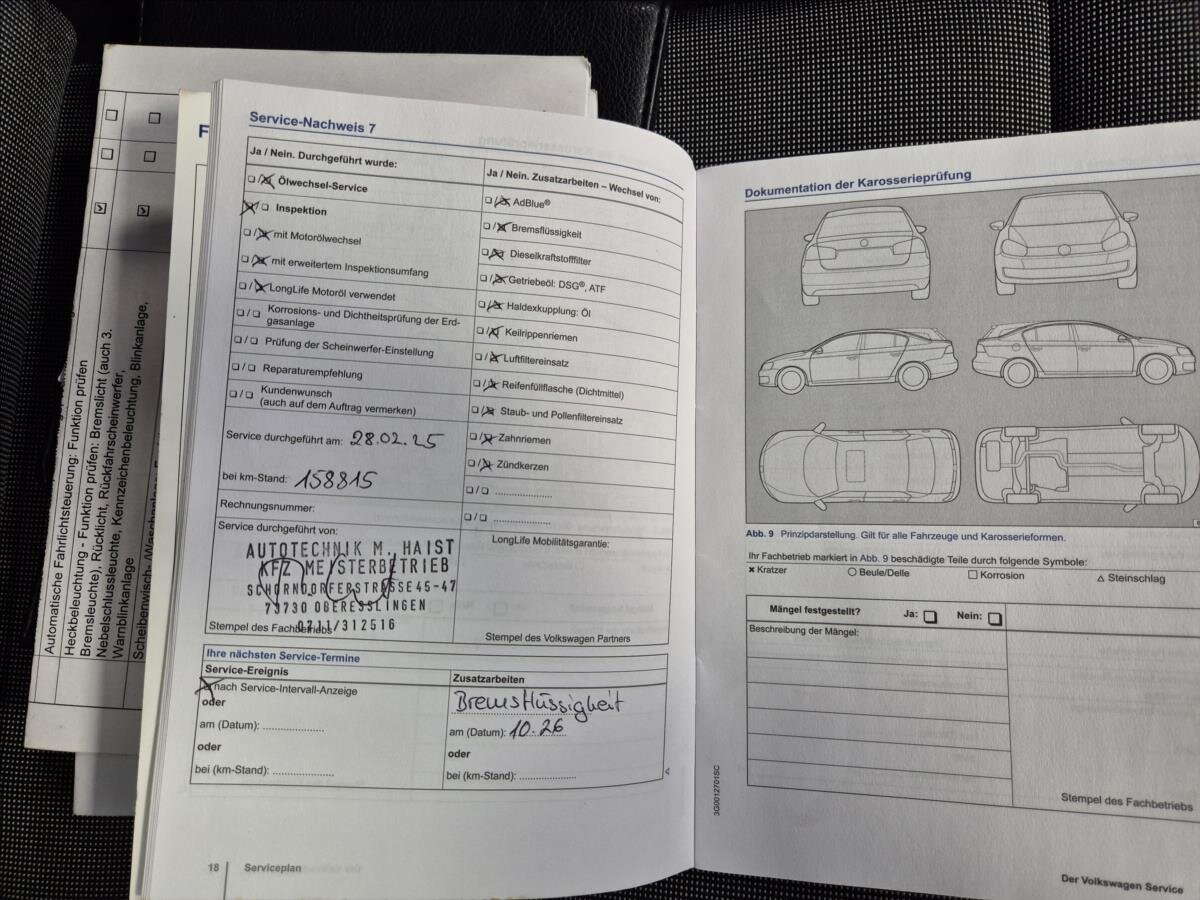 Service-Nachweis 7
Ja / Nein. Durchgeführt wurde:
❑/❑ Ölwechsel-Service
❑/❑ Inspektion
❑/❑ mit Motorölwechsel
❑/❑ mit erweitertem Inspektionsumfang
❑/❑ LongLife Motoröl verwendet
❑/❑ Korrosions- und Dichtheitsprüfung der Erd-
gasanlage
❑/❑ Prüfung der Scheinwerfer-Einstellung
❑/❑ Reparaturempfehlung
❑/❑ Kundenwunsch
(auch auf dem Auftrag vermerken)
Service durchgeführt am: 28.02.25
bei km-Stand: 158815
Rechnungsnummer:
Service durchgeführt von:
AUTOTECHNIK M. HAIST
KFZ MEISTERBETRIEB
SCHORNDORFERSTRASSE 45-47
73730 OBERESSLINGEN
0711/312516
Stempel des Fachbetriebs
Ja / Nein. Zusatzarbeiten – Wechsel von:
❑/❑ AdBlue®
❑/❑ Bremsflüssigkeit
❑/❑ Dieselkraftstofffilter
❑/❑ Getriebeöl: DSG®, ATF
❑/❑ Haldexkupplung: Öl
❑/❑ Keilrippenriemen
❑/❑ Luftfiltereinsatz
❑/❑ Reifenfüllflasche (Dichtmittel)
❑/❑ Staub- und Pollenfiltereinsatz
❑/❑ Zahnriemen
❑/❑ Zündkerzen
❑/❑ ....................
❑/❑ ....................
LongLife Mobilitätsgarantie:
Stempel des Volkswagen Partners
Ihre nächsten Service-Termine
Service-Ereignis
nach Service-Intervall-Anzeige
oder
am (Datum): ....................
oder
bei (km-Stand): ....................
Zusatzarbeiten
Bremsflüssigkeit
am (Datum): 10.26
oder
bei (km-Stand): ....................
18 Serviceplan
Dokumentation der Karosserieprüfung
Abb. 9 Prinzipdarstellung. Gilt für alle Fahrzeuge und Karosserieformen.
Ihr Fachbetrieb markiert in Abb. 9 beschädigte Teile durch folgende Symbole:
× Kratzer ○ Beule/Delle □ Korrosion △ Steinschlag
Mängel festgestellt? Ja: ❑ Nein: ❑
Beschreibung der Mängel:
Stempel des Fachbetriebs
3G0012701SC
Der Volkswagen Service
F
Automatische Fahrlichtsteuerung: Funktion prüfen
Heckbeleuchtung - Funktion prüfen: Bremslicht (auch 3.
Bremsleuchte), Rücklicht, Rückfahrscheinwerfer,
Nebelschlussleuchte, Kennzeichenbeleuchtung, Blinkanlage,
Warnblinkanlage